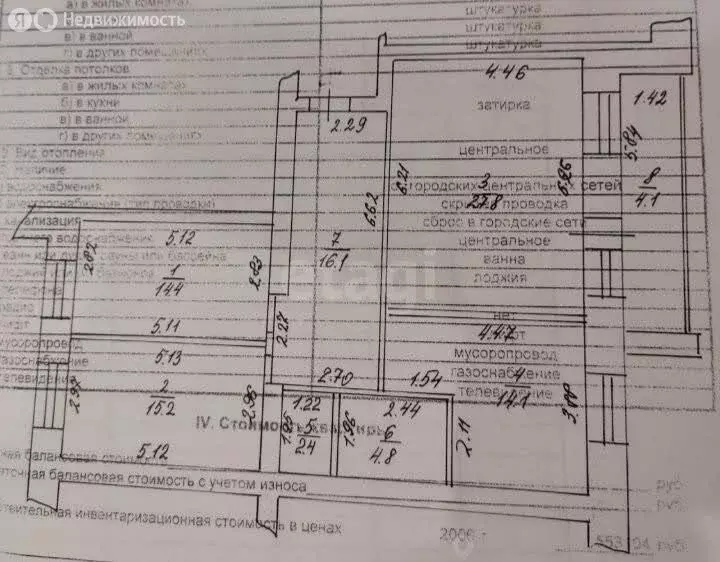 Я Недвижимость
а) в жилых комнатах
штукатурка
штукатурка
в) в ванной
штукатурка
г) в других помещениях
штукатурка
Отделка потолков
а) в жилых комнатах
б) в кухни
затирка
в) в ванной
г) в других помещениях
Вид отопления
центральное
наличие
водоснабжения
от городских центральных сетей
электроснабжение (тип проводки)
скрытая проводка
канализация
сброс в городские сети
водоснабжение
центральное
ванна
лоджия
нет
мусоропровод
мусоропровод
газоснабжение
газоснабжение
телевидение
телевидение
4.46
1.42
2.29
5.84
6.21
6.62
3
27.8
8
4.1
5.12
2.82
2.83
7
16.1
1
14.4
5.11
2.27
4.47
5.13
2.70
1.54
4
14.1
2
15.2
2.96
1.22
2.44
1.96
5
2.4
6
4.8
2.11
5.12
IV. Стоимость квартиры
балансовая стоимость
руб
балансовая стоимость с учетом износа
руб
инвентаризационная стоимость в ценах
2006 г
руб